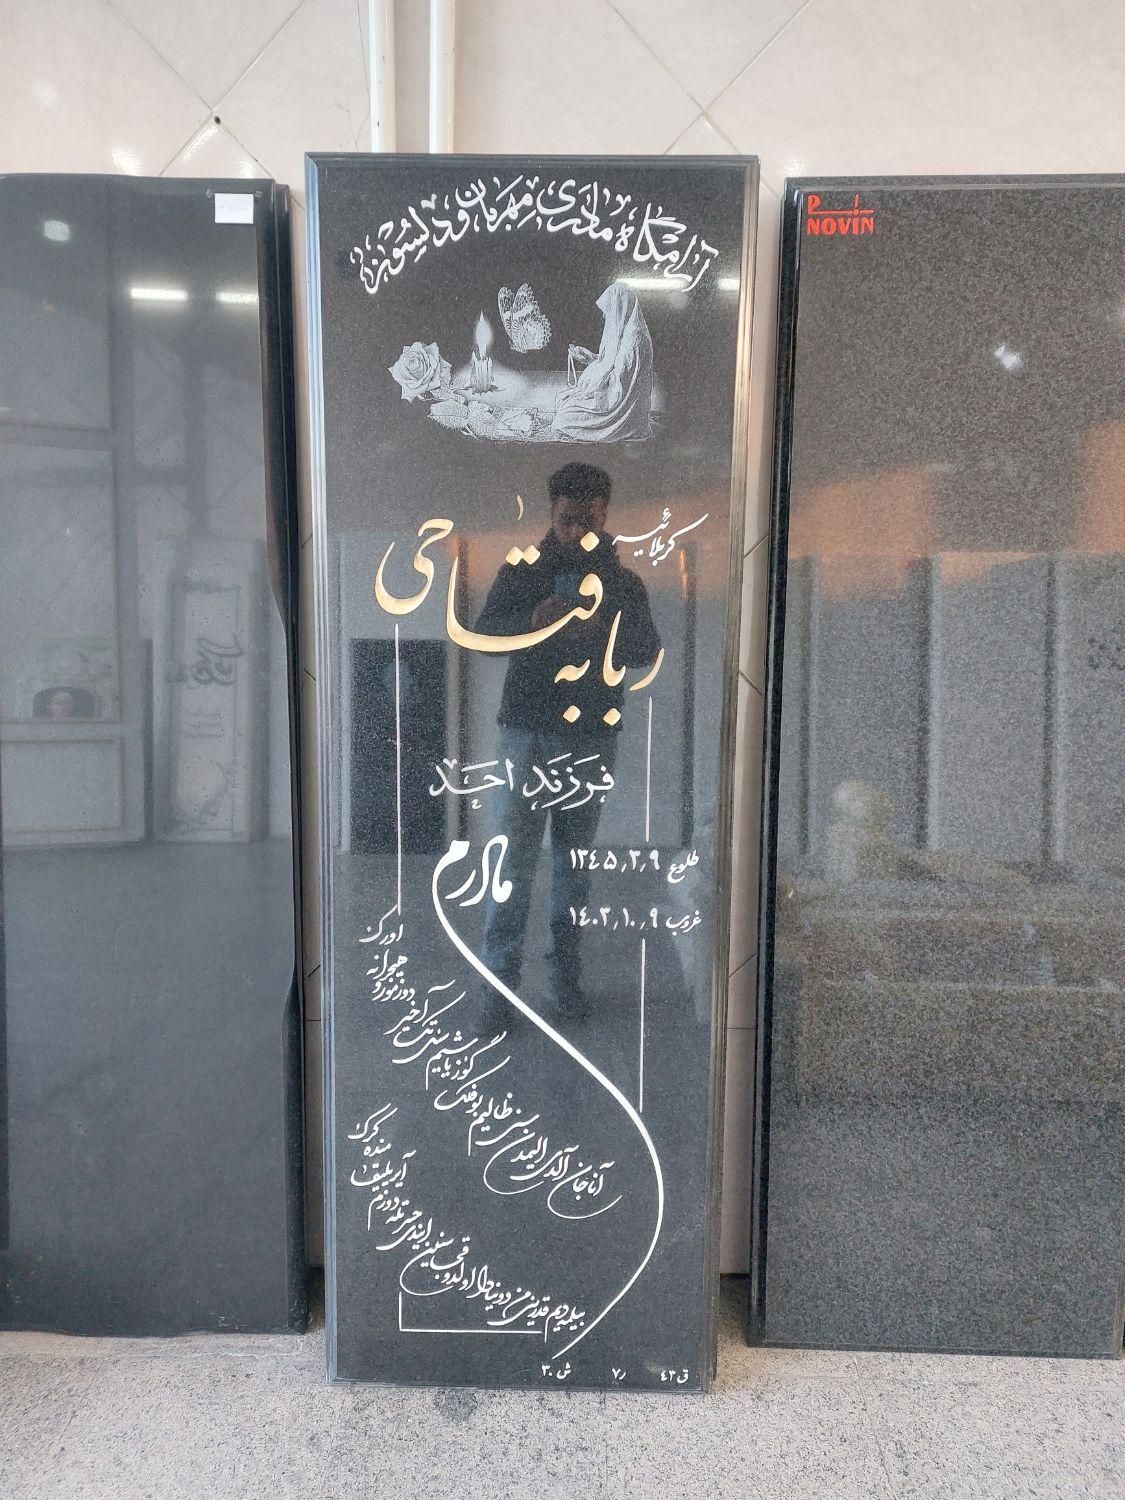 آرامگاه مادری مهربان و دلسوز
کربلائیه
ربابه فتاحی
فرزند احد
طلوع ۱۳۴۵,۳,۹
غروب ۱۴۰۳,۱۰,۹
مادرم
آناجان آلدی الیمدن سنی ظالیم بو فلک
گوز یاشیم سنی تک آخیر دوزمورو هیجرانه اورک
بیلمه دیم قدرینی من دونیادا اولدوقجا سنین
ایندی حسرتله دوزم آیریلیقا منده گرک
ق ۴۳
ر ۷
ش ۳۰
P
NOVIN